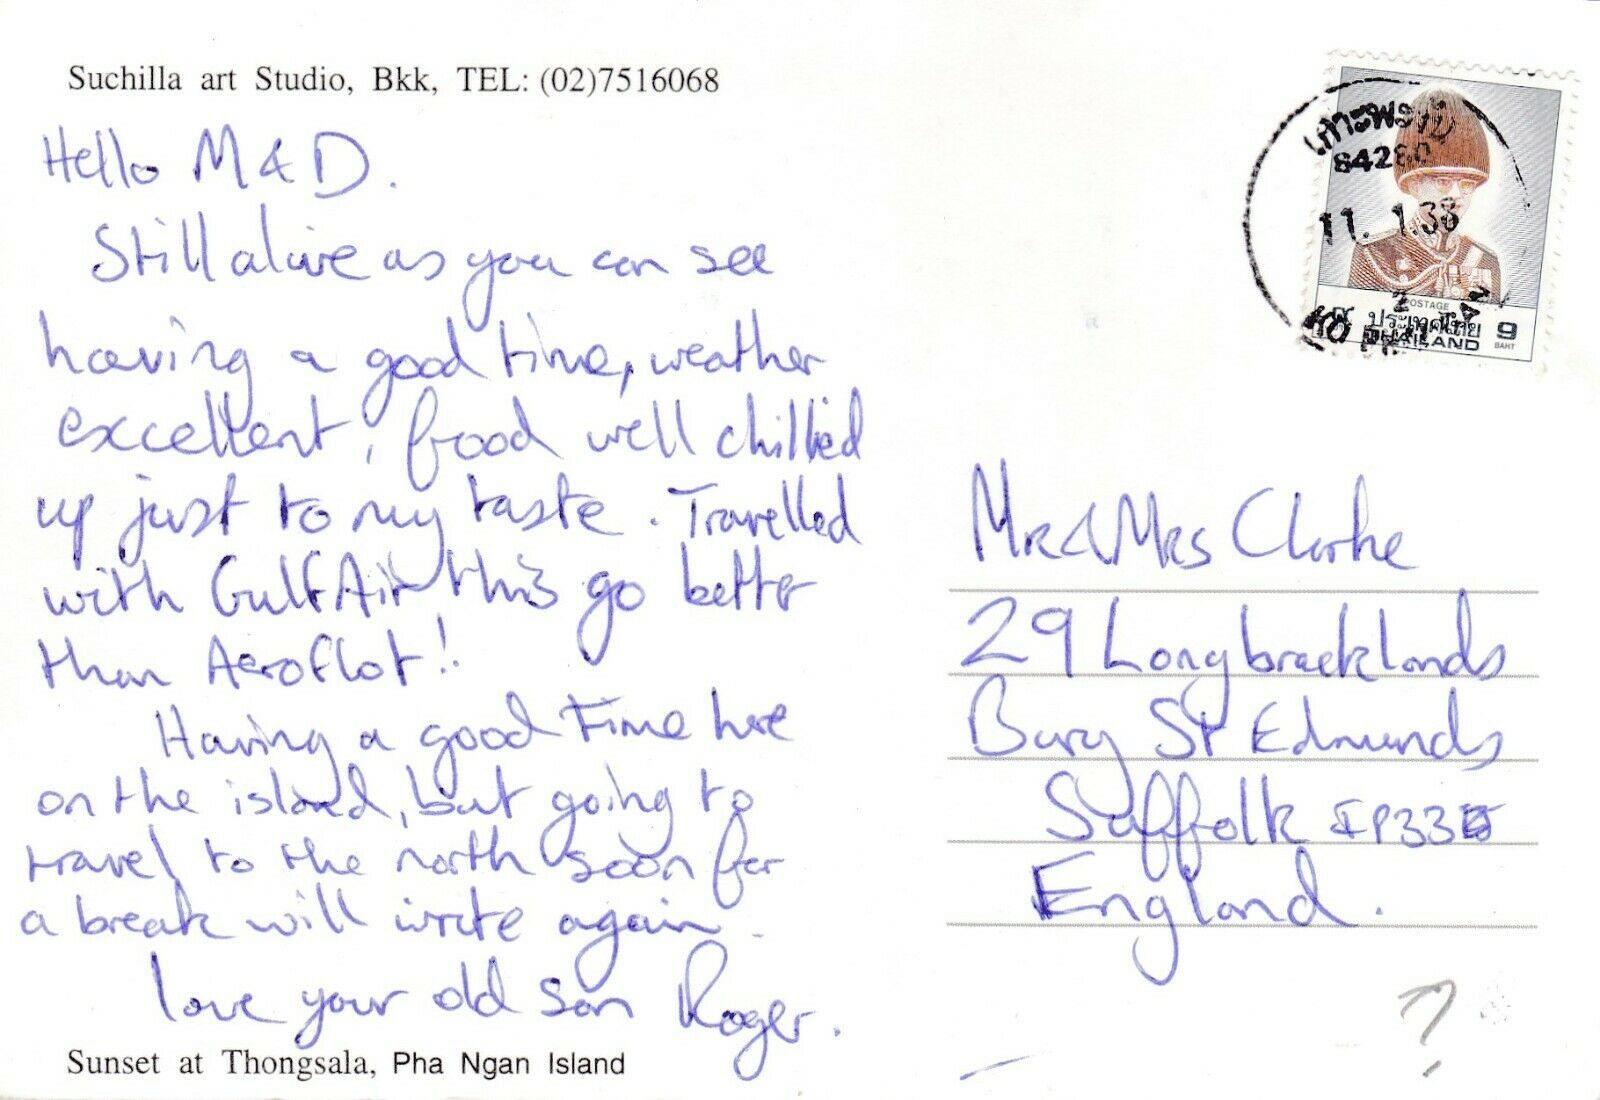 Suchilla art Studio, Bkk, TEL: (02)7516068
Hello M & D.
Still alive as you can see
having a good time, weather
excellent, food well chillied
up just to my taste. Travelled
with Gulf Air this go better
than Aeroflot!
Having a good time here
on the island, but going to
travel to the north soon for
a break will write again.
love your old son Roger.
Sunset at Thongsala, Pha Ngan Island
เกาะพะงัน
84280
11. 1.38
KO
POSTAGE
ประเทศไทย
THAILAND
9
BAHT
Mr & Mrs Clarke
29 Longbracklands
Bury St Edmunds
Suffolk IP33
England.
?